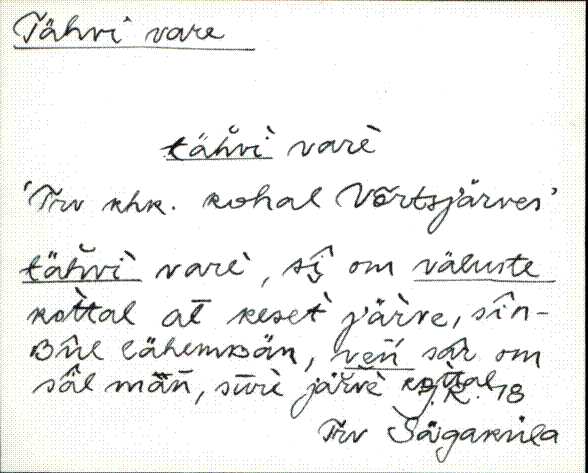 Tähvi vare
täh̆vì varè
'Trv khk. kohal Võrtsjärves'
täh̆vì varè, sî̮ om väluste
kot̀tal at̄ keset̀ jäŕve, sîn-
Bîl lähemBän, veń sâr om
sâl mǟn, sūrè järvè kot̀tal
J.K. 78
Trv Sägaküla